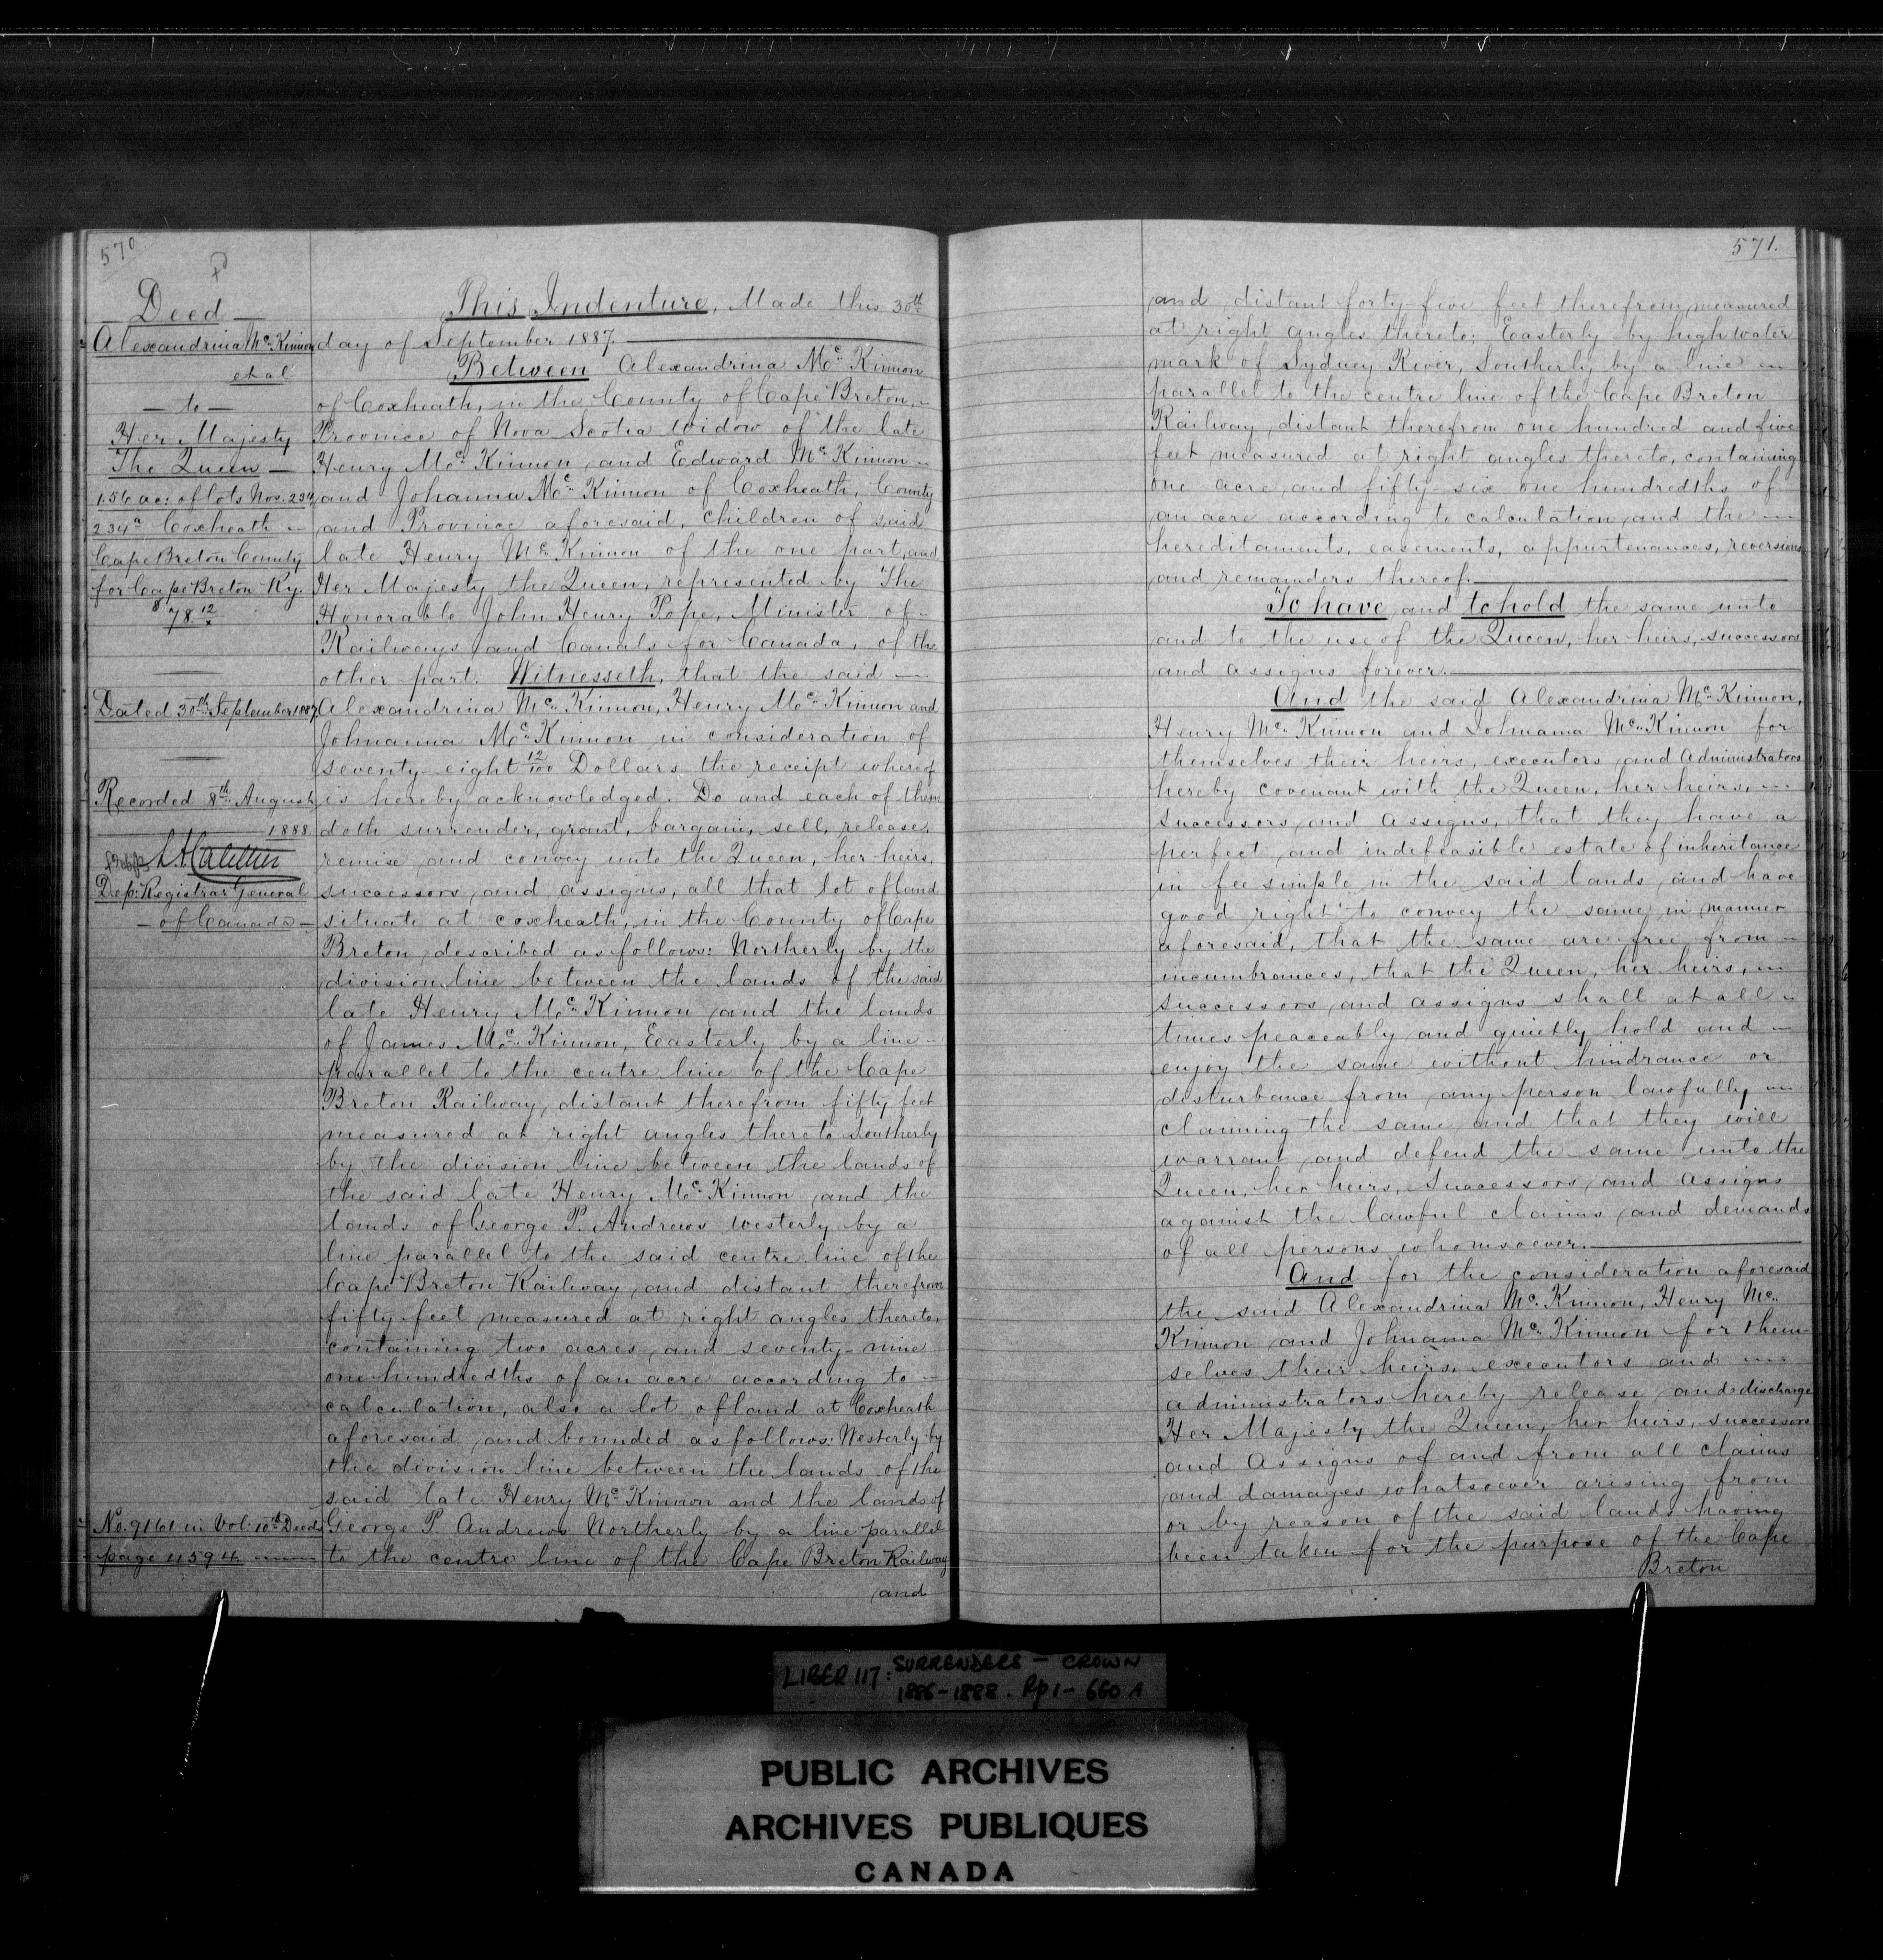 570
Deed
Alexandrina Mc. Kinnon
et al
— to —
Her Majesty
The Queen —
1.56 ac: of lots Nos. 234,
234a Coxheath —
Cape Breton County
for Cape Breton Ry.
$78 12/x
Dated 30th September 1887
Recorded 8th August
1888
Dep: Registrar General
— of Canada —
No. 9161 in Vol. 10th Deeds
page 4594
This Indenture, Made this 30th
day of September 1887.
Between Alexandrina Mc. Kinnon
of Coxheath, in the County of Cape Breton, —
Province of Nova Scotia Widow of the late
Henry Mc. Kinnon and Edward Mc. Kinnon —
and Johanna Mc. Kinnon of Coxheath, County
and Province aforesaid, children of said
late Henry Mc. Kinnon of the one part, and
Her Majesty the Queen, represented by The
Honorable John Henry Pope, Minister of —
Railways and Canals for Canada, of the
other part. Witnesseth, that the said —
Alexandrina Mc. Kinnon, Henry Mc. Kinnon and
Johnanna Mc. Kinnon in consideration of
seventy-eight 12/100 Dollars the receipt whereof
is hereby acknowledged. Do and each of them
doth surrender, grant, bargain, sell, release,
remise and convey unto the Queen, her heirs,
successors and assigns, all that lot of land
situate at Coxheath, in the County of Cape
Breton, described as follows: Northerly by the
division line between the lands of the said
late Henry Mc. Kinnon and the lands
of James Mc. Kinnon, Easterly by a line —
parallel to the centre line of the Cape
Breton Railway, distant therefrom fifty feet
measured at right angles thereto Southerly
by the division line between the lands of
the said late Henry Mc. Kinnon and the
lands of George P. Andrews Westerly by a
line parallel to the said centre line of the
Cape Breton Railway, and distant therefrom
fifty feet measured at right angles thereto,
containing two acres and seventy-nine
one hundredths of an acre according to —
calculation, also a lot of land at Coxheath
aforesaid and bounded as follows: Westerly by
the division line between the lands of the
said late Henry Mc. Kinnon and the lands of
George P. Andrews Northerly by a line parallel
to the centre line of the Cape Breton Railway
and
571.
and distant forty-five feet therefrom, measured
at right angles thereto; Easterly by high water
mark of Sydney River, Southerly by a line —
parallel to the centre line of the Cape Breton
Railway, distant therefrom one hundred and five
feet measured at right angles thereto, containing
one acre and fifty-six one hundredths of
an acre according to calculation and the —
hereditaments, easements, appurtenances, reversions
and remainders thereof.
To have and to hold the same unto
and to the use of the Queen, her heirs, successors
and assigns forever.
And the said Alexandrina Mc. Kinnon,
Henry Mc. Kinnon and Johnanna Mc. Kinnon for
themselves their heirs, executors and Administrators
hereby covenant with the Queen, her heirs, —
Successors and Assigns, that they have a
perfect and indefeasible estate of inheritance
in fee simple in the said lands and have
good right to convey the same in manner
aforesaid, that the same are free from —
incumbrances, that the Queen, her heirs, —
Successors and Assigns shall at all —
times peaceably and quietly hold and —
enjoy the same without hindrance or
disturbance from any person lawfully —
claiming the same and that they will
warrant and defend the same unto the
Queen, her heirs, Successors and Assigns
against the lawful claims and demands
of all persons whomsoever.
And for the consideration aforesaid
the said Alexandrina Mc. Kinnon, Henry Mc.
Kinnon and Johnanna Mc. Kinnon for them-
selves their heirs, executors and —
administrators hereby release and discharge
Her Majesty the Queen, her heirs, successors
and Assigns of and from all claims
and damages whatsoever arising from
or by reason of the said lands having
been taken for the purpose of the Cape
Breton
LIBER 117: SURRENDERS – CROWN
1886–1888. Pp 1–660A
PUBLIC ARCHIVES
ARCHIVES PUBLIQUES
CANADA